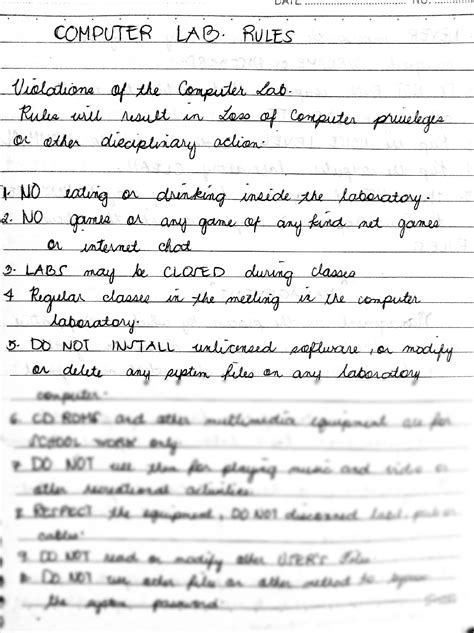 DATE NO.
COMPUTER LAB. RULES
Violations of the Computer Lab.
Rules will result in Loss of Computer privieleges
or other disciplinary action.
1. NO eating or drinking inside the laboratory.
2. NO games or any game of any kind net games
or internet chat
3. LABS may be CLOSED during classes
4 Regular classes in the meeting in the computer
laboratory.
5. DO NOT INSTALL unlicensed software, or modify
or delete any system files on any laboratory
computer.
6. CD ROMS and other multimedia equipment are for
SCHOOL WORK only.
7. DO NOT use them for playing music and video or
other recreational activities.
8. RESPECT the equipment, DO NOT or
cables.
9. DO NOT read or modify other USER'S Files.
DO NOT use other files or other method to
the system password.